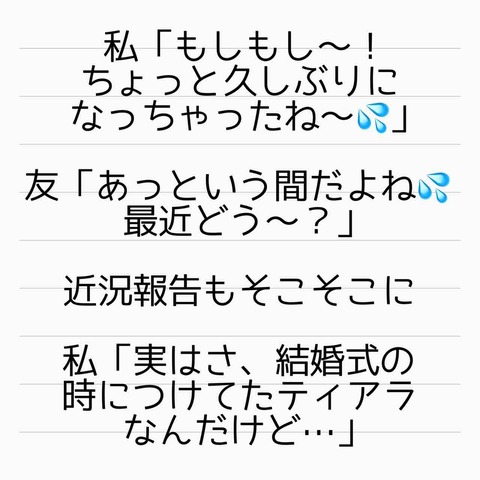 私「もしもし〜！
ちょっと久しぶりに
なっちゃったね〜💦」
友「あっという間だよね💦
最近どう〜？」
近況報告もそこそこに
私「実はさ、結婚式の
時につけてたティアラ
なんだけど…」